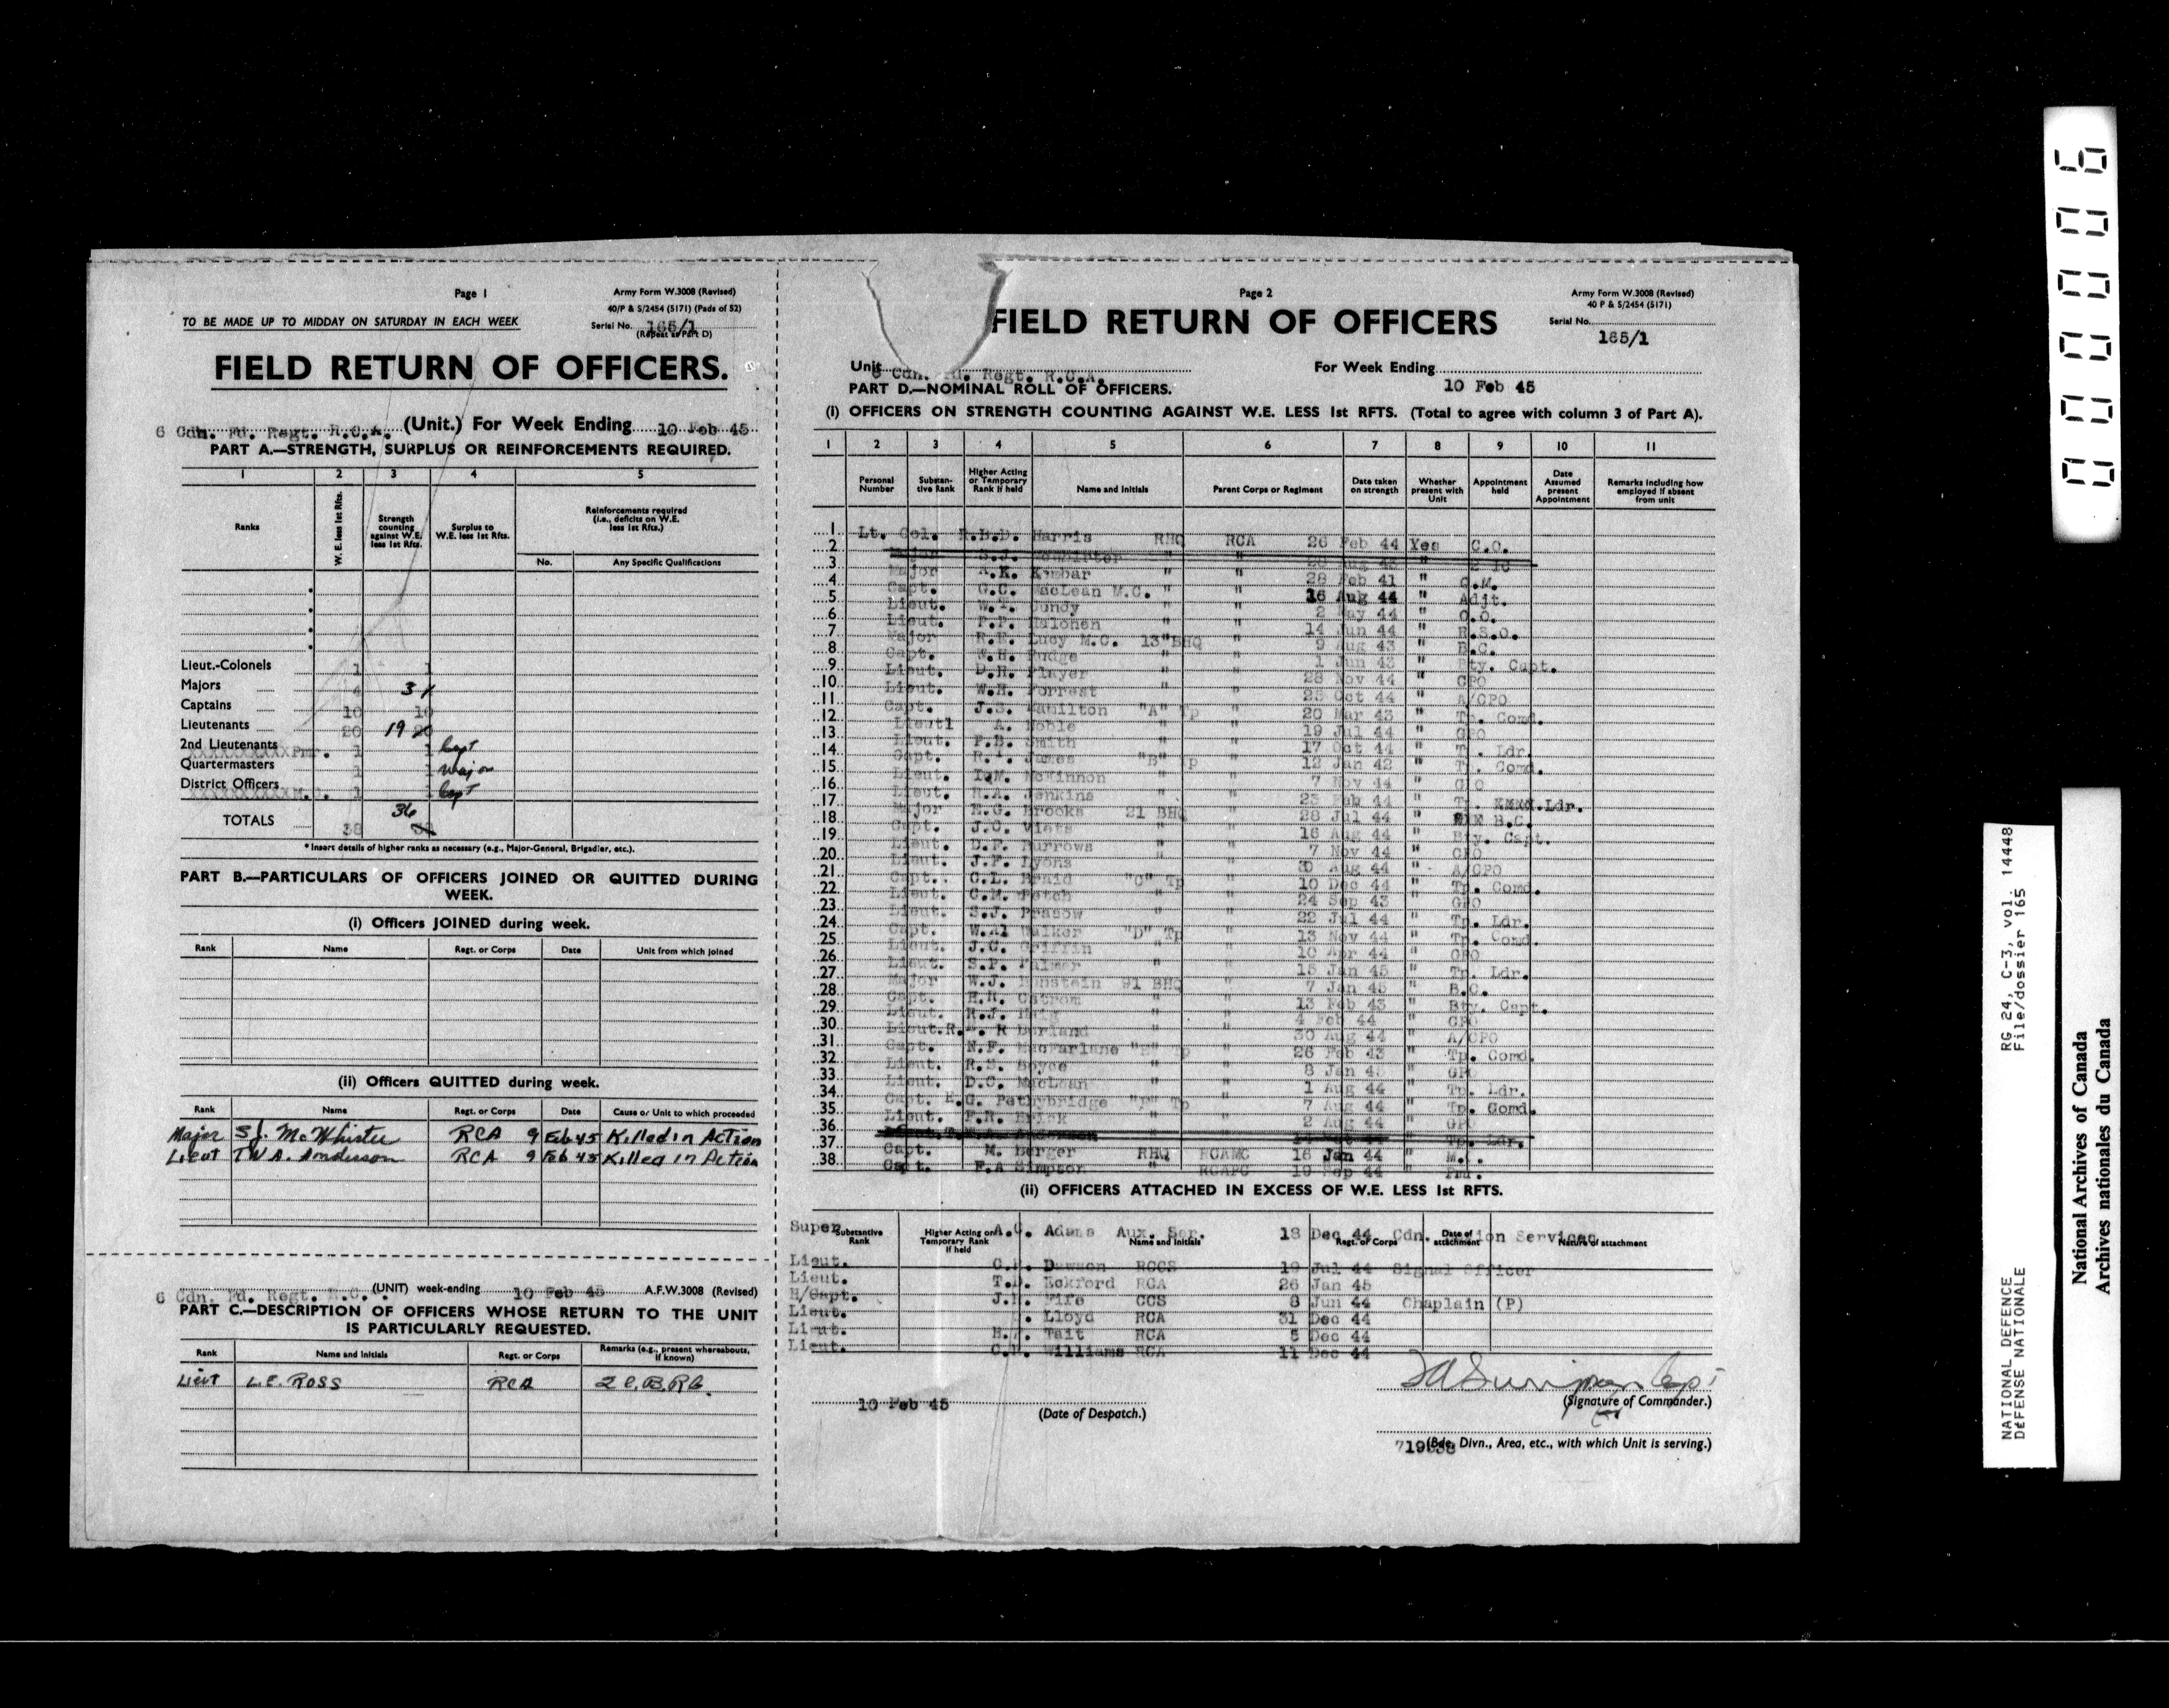 Page 1
Army Form W.3008 (Revised)
40/P & S/2454 (5171) (Pads of 52)
TO BE MADE UP TO MIDDAY ON SATURDAY IN EACH WEEK
Serial No. 165/1
(Repeat in Part D)
FIELD RETURN OF OFFICERS.
6 Cdn. Fd. Regt. R.C.A. (Unit.) For Week Ending 10 Feb 45
PART A.—STRENGTH, SURPLUS OR REINFORCEMENTS REQUIRED.
1 2 3 4 5
Ranks
W. E. less 1st Rfts.
Strength counting against W.E. less 1st Rfts.
Surplus to W.E. less 1st Rfts.
Reinforcements required (i.e., deficits on W.E. less 1st Rfts.)
No. Any Specific Qualifications
Lieut.-Colonels 1 1
Majors 4 3
Captains 10 10
Lieutenants 20 19 20
2nd Lieutenants Pmr. 1 1 Capt
Quartermasters 1 1 Major
District Officers M.O. 1 1 Capt
TOTALS 38 36
* Insert details of higher ranks as necessary (e.g., Major-General, Brigadier, etc.).
PART B.—PARTICULARS OF OFFICERS JOINED OR QUITTED DURING
WEEK.
(i) Officers JOINED during week.
Rank Name Regt. or Corps Date Unit from which joined
(ii) Officers QUITTED during week.
Rank Name Regt. or Corps Date Cause or Unit to which proceeded
Major S.J. McWhister RCA 9 Feb 45 Killed in Action
Lieut T W A. Anderson RCA 9 Feb 45 Killed in Action
6 Cdn. Fd. Regt. R.C.A. (UNIT) week-ending 10 Feb 45 A.F.W.3008 (Revised)
PART C.—DESCRIPTION OF OFFICERS WHOSE RETURN TO THE UNIT
IS PARTICULARLY REQUESTED.
Rank Name and Initials Regt. or Corps Remarks (e.g., present whereabouts, if known)
Lieut L.E. ROSS RCA 2 C.B.R.G.
Page 2
Army Form W.3008 (Revised)
40 P & S/2454 (5171)
FIELD RETURN OF OFFICERS
Serial No.
165/1
Unit 6 Cdn. Fd. Regt. R.C.A. For Week Ending
10 Feb 45
PART D.—NOMINAL ROLL OF OFFICERS.
(i) OFFICERS ON STRENGTH COUNTING AGAINST W.E. LESS 1st RFTS. (Total to agree with column 3 of Part A).
1 2 3 4 5 6 7 8 9 10 11
Personal Number
Substantive Rank
Higher Acting or Temporary Rank if held
Name and Initials
Parent Corps or Regiment
Date taken on strength
Whether present with Unit
Appointment held
Date Assumed present Appointment
Remarks including how employed if absent from unit
1 Lt. Col. R.B.D. Harris RHQ RCA 26 Feb 44 Yes C.O.
2 Major S.J.
3 Major A.K. Kembar " " 28 Feb 41 " Q.M.
4 Capt. G.C. MacLean M.C. " " 16 Aug 44 " Adjt.
5 Lieut. W.T. " " 2 May 44 " O.O.
6 Lieut. P.P. Malonen " " 14 Jun 44 " R.S.O.
7 Major R.F. Lucy M.C. 13 BHQ " 9 Aug 43 " B.C.
8 Capt. W.H. Fudge " " 1 Jun 43 " Bty. Capt.
9 Lieut. D.H. Player " " 28 Nov 44 " CPO
10 Lieut. W.H. Forrest " " 25 Oct 44 " A/CPO
11 Capt. J.S. Hamilton "A" Tp " 20 Mar 43 " Tp. Comd.
12 Lieut A. Noble " " 19 Jul 44 " GPO
13 Lieut. P.B. Smith " " 17 Oct 44 " Tp. Ldr.
14 Capt. R.T. James "B" Tp " 12 Jan 42 " Tp. Comd.
15 Lieut. I.M. McKinnon " " 7 Nov 44 " GPO
16 Lieut. R.A. Jenkins " " 23 Feb 44 " Tp. Ldr.
17 Major H.G. Brooks 21 BHQ " 28 Jul 44 " B.C.
18 Capt. J.C. Viets " " 16 Aug 44 " Bty. Capt.
19 Lieut. D.F. Burrows " " 7 Nov 44 " CPO
20 Lieut. J.F. Lyons " " Aug 44 " A/CPO
21 Capt. C.L. "C" Tp " 10 Dec 44 " Tp. Comd.
22 Lieut. C.M. Petch " " 24 Sep 43 " GPO
23 Lieut. S.J. " " 22 Jul 44 " Tp. Ldr.
24 Capt. W.A. Walker "D" Tp " 13 Nov 44 " Tp. Comd.
25 Lieut. J.C. Griffin " " 10 Apr 44 " GPO
26 Lieut. S.P. Palmer " " 15 Jan 45 " Tp. Ldr.
27 Major W.J. 91 BHQ " 7 Jan 45 " B.C.
28 Capt. H.H. Ostrom " " 13 Feb 43 " Bty. Capt.
29 Lieut. R.J. Haig " " 4 Feb 44 " CPO
30 Lieut. R. R Dorland " " 30 Aug 44 " A/CPO
31 Capt. N.F. MacFarlane "E" Tp " 26 Feb 43 " Tp. Comd.
32 Lieut. R.S. Boyce " " 8 Jan 45 " GPO
33 Lieut. D.C. MacLean " " 1 Aug 44 " Tp. Ldr.
34 Capt. H.G. Pethybridge "F" Tp " 7 Aug 44 " Tp. Comd.
35 Lieut. F.R. " " 2 Aug 44 " GPO
36 Lieut. Anderson Tp. Ldr.
37 Capt. M. Berger RHQ RCAMC 16 Jan 44 " M.O.
38 Capt. F.A Simpson " RCAPC 19 Sep 44 " Pmr.
(ii) OFFICERS ATTACHED IN EXCESS OF W.E. LESS 1st RFTS.
Substantive Rank
Higher Acting or Temporary Rank if held
Name and Initials
Regt. or Corps
Date of attachment
Nature of attachment
Super. A.C. Adams Aux. Ser. 18 Dec 44 Cdn. Legion Services
Lieut. Dawson RCCS 19 Jul 44 Signal Officer
Lieut. T.D. Eckford RCA 26 Jan 45
H/Capt. J.H. Fife CCS 8 Jun 44 Chaplain (P)
Lieut. Lloyd RCA 31 Dec 44
Lieut. Tait RCA 5 Dec 44
Lieut. Williams RCA 11 Dec 44
10 Feb 45
(Date of Despatch.)
FA Simpson Capt
(Signature of Commander.)
(Bde, Divn., Area, etc., with which Unit is serving.)
00006
RG 24, C-3, vol. 14448
File/dossier 165
NATIONAL DEFENCE
DÉFENSE NATIONALE
National Archives of Canada
Archives nationales du Canada